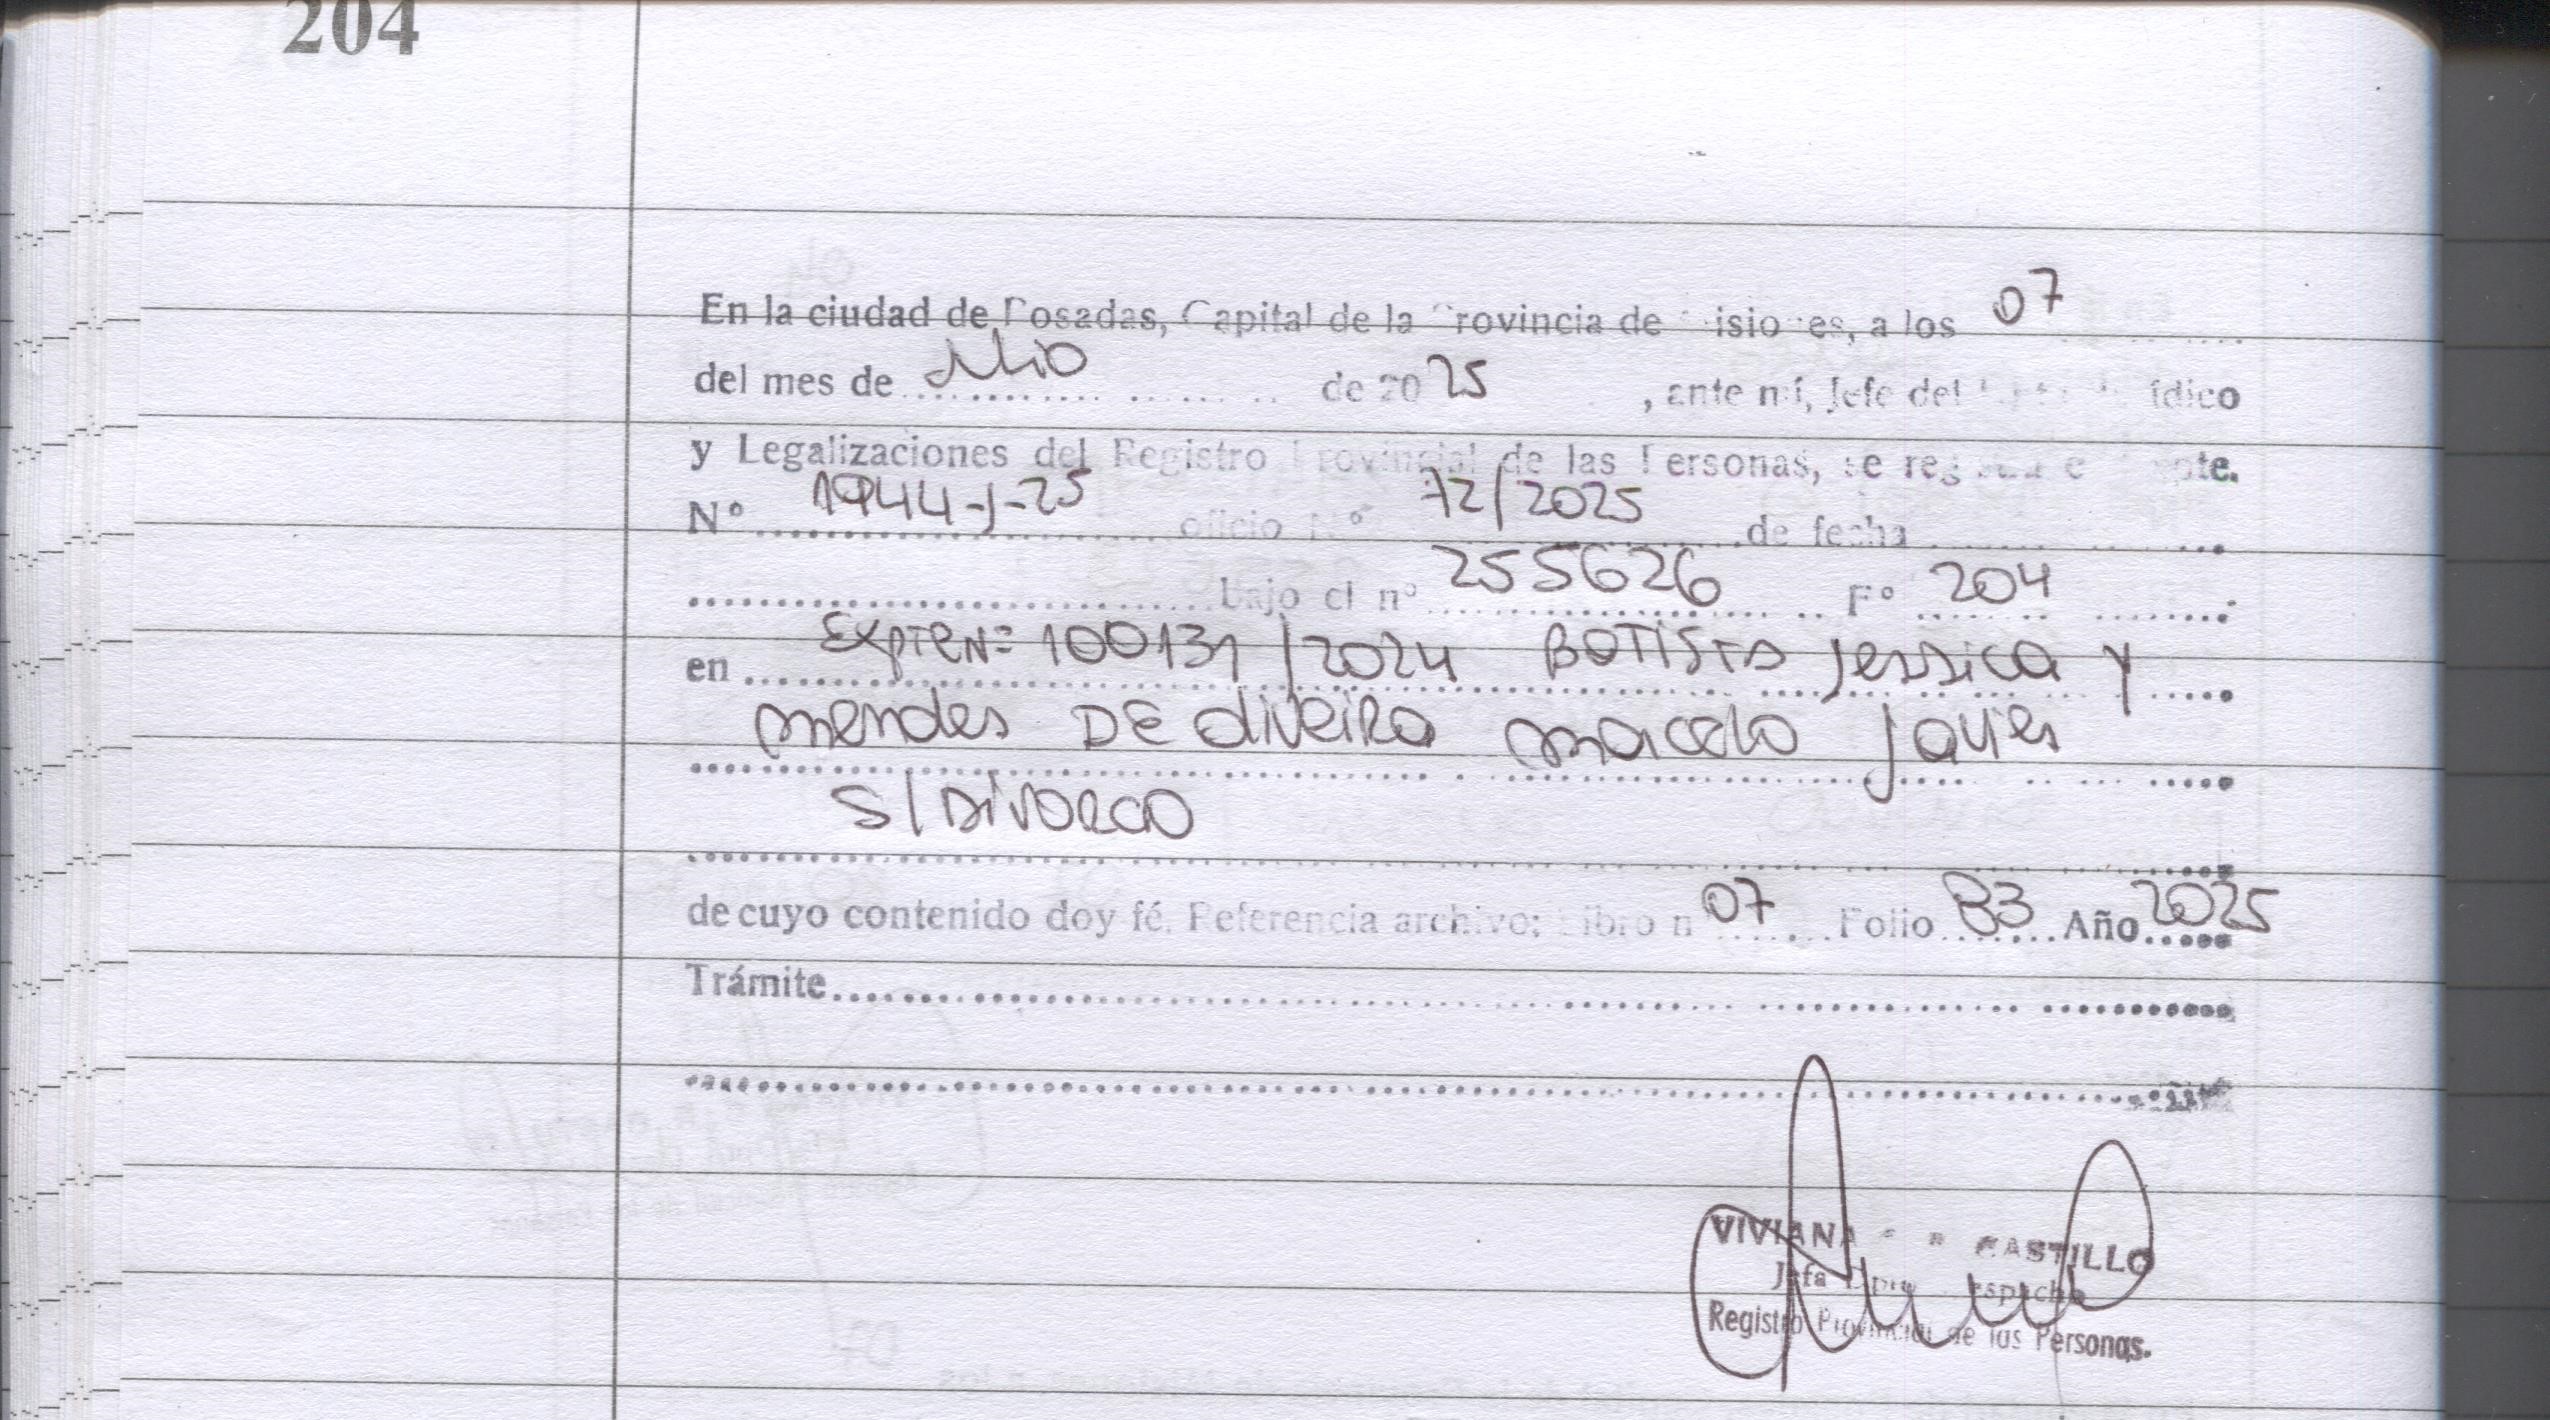 204
En la ciudad de Posadas, Capital de la Provincia de Misiones, a los 07
del mes de Julio de 2025, ante mí, Jefe del ídico
y Legalizaciones del Registro Provincial de las Personas, se registra e
Nº 1944-J-25 oficio Nº 72/2025 de fecha
bajo el nº 255626 Fº 204
en Expte Nº 100131/2024 BATISTA Jessica y
mendes DE oliveira marcelo Javier
S/DIVORCIO
de cuyo contenido doy fé. Referencia archivo: Libro n 07 Folio 83 Año 2025
Trámite
VIVIANA CASTILLO
Jefa Dpto Despacho
Registro Provincial de las Personas.